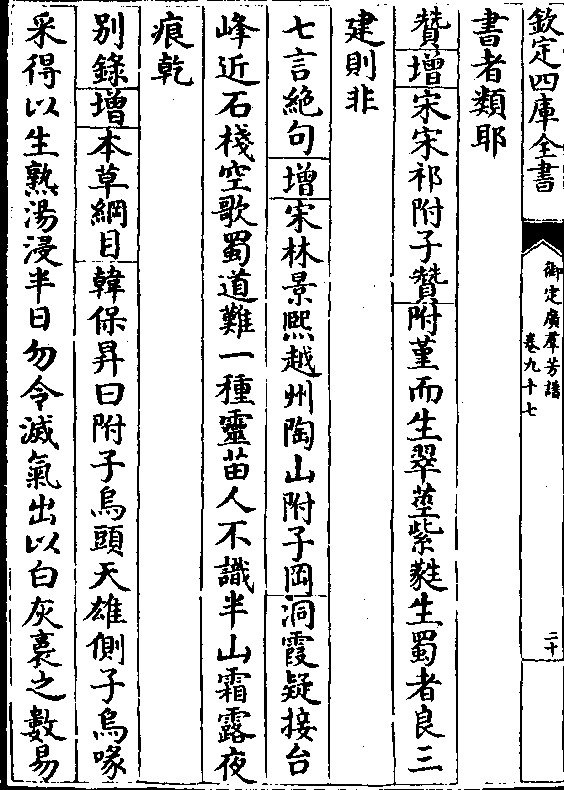 欽定四庫全書
御定廣羣芳譜
卷九十七
二十
書者類耶
贊增宋宋祁附子贊附堇而生翠莖紫蕤生蜀者良三
建則非
七言絶句增宋林景熙越州陶山附子岡洞霞疑接台
峰近石棧空歌蜀道難一種靈苗人不識半山霜露夜
痕乾
别錄增本草綱目韓保昇曰附子烏頭天雄側子烏喙
采得以生熟湯浸半日勿令滅氣出以白灰裛之數易